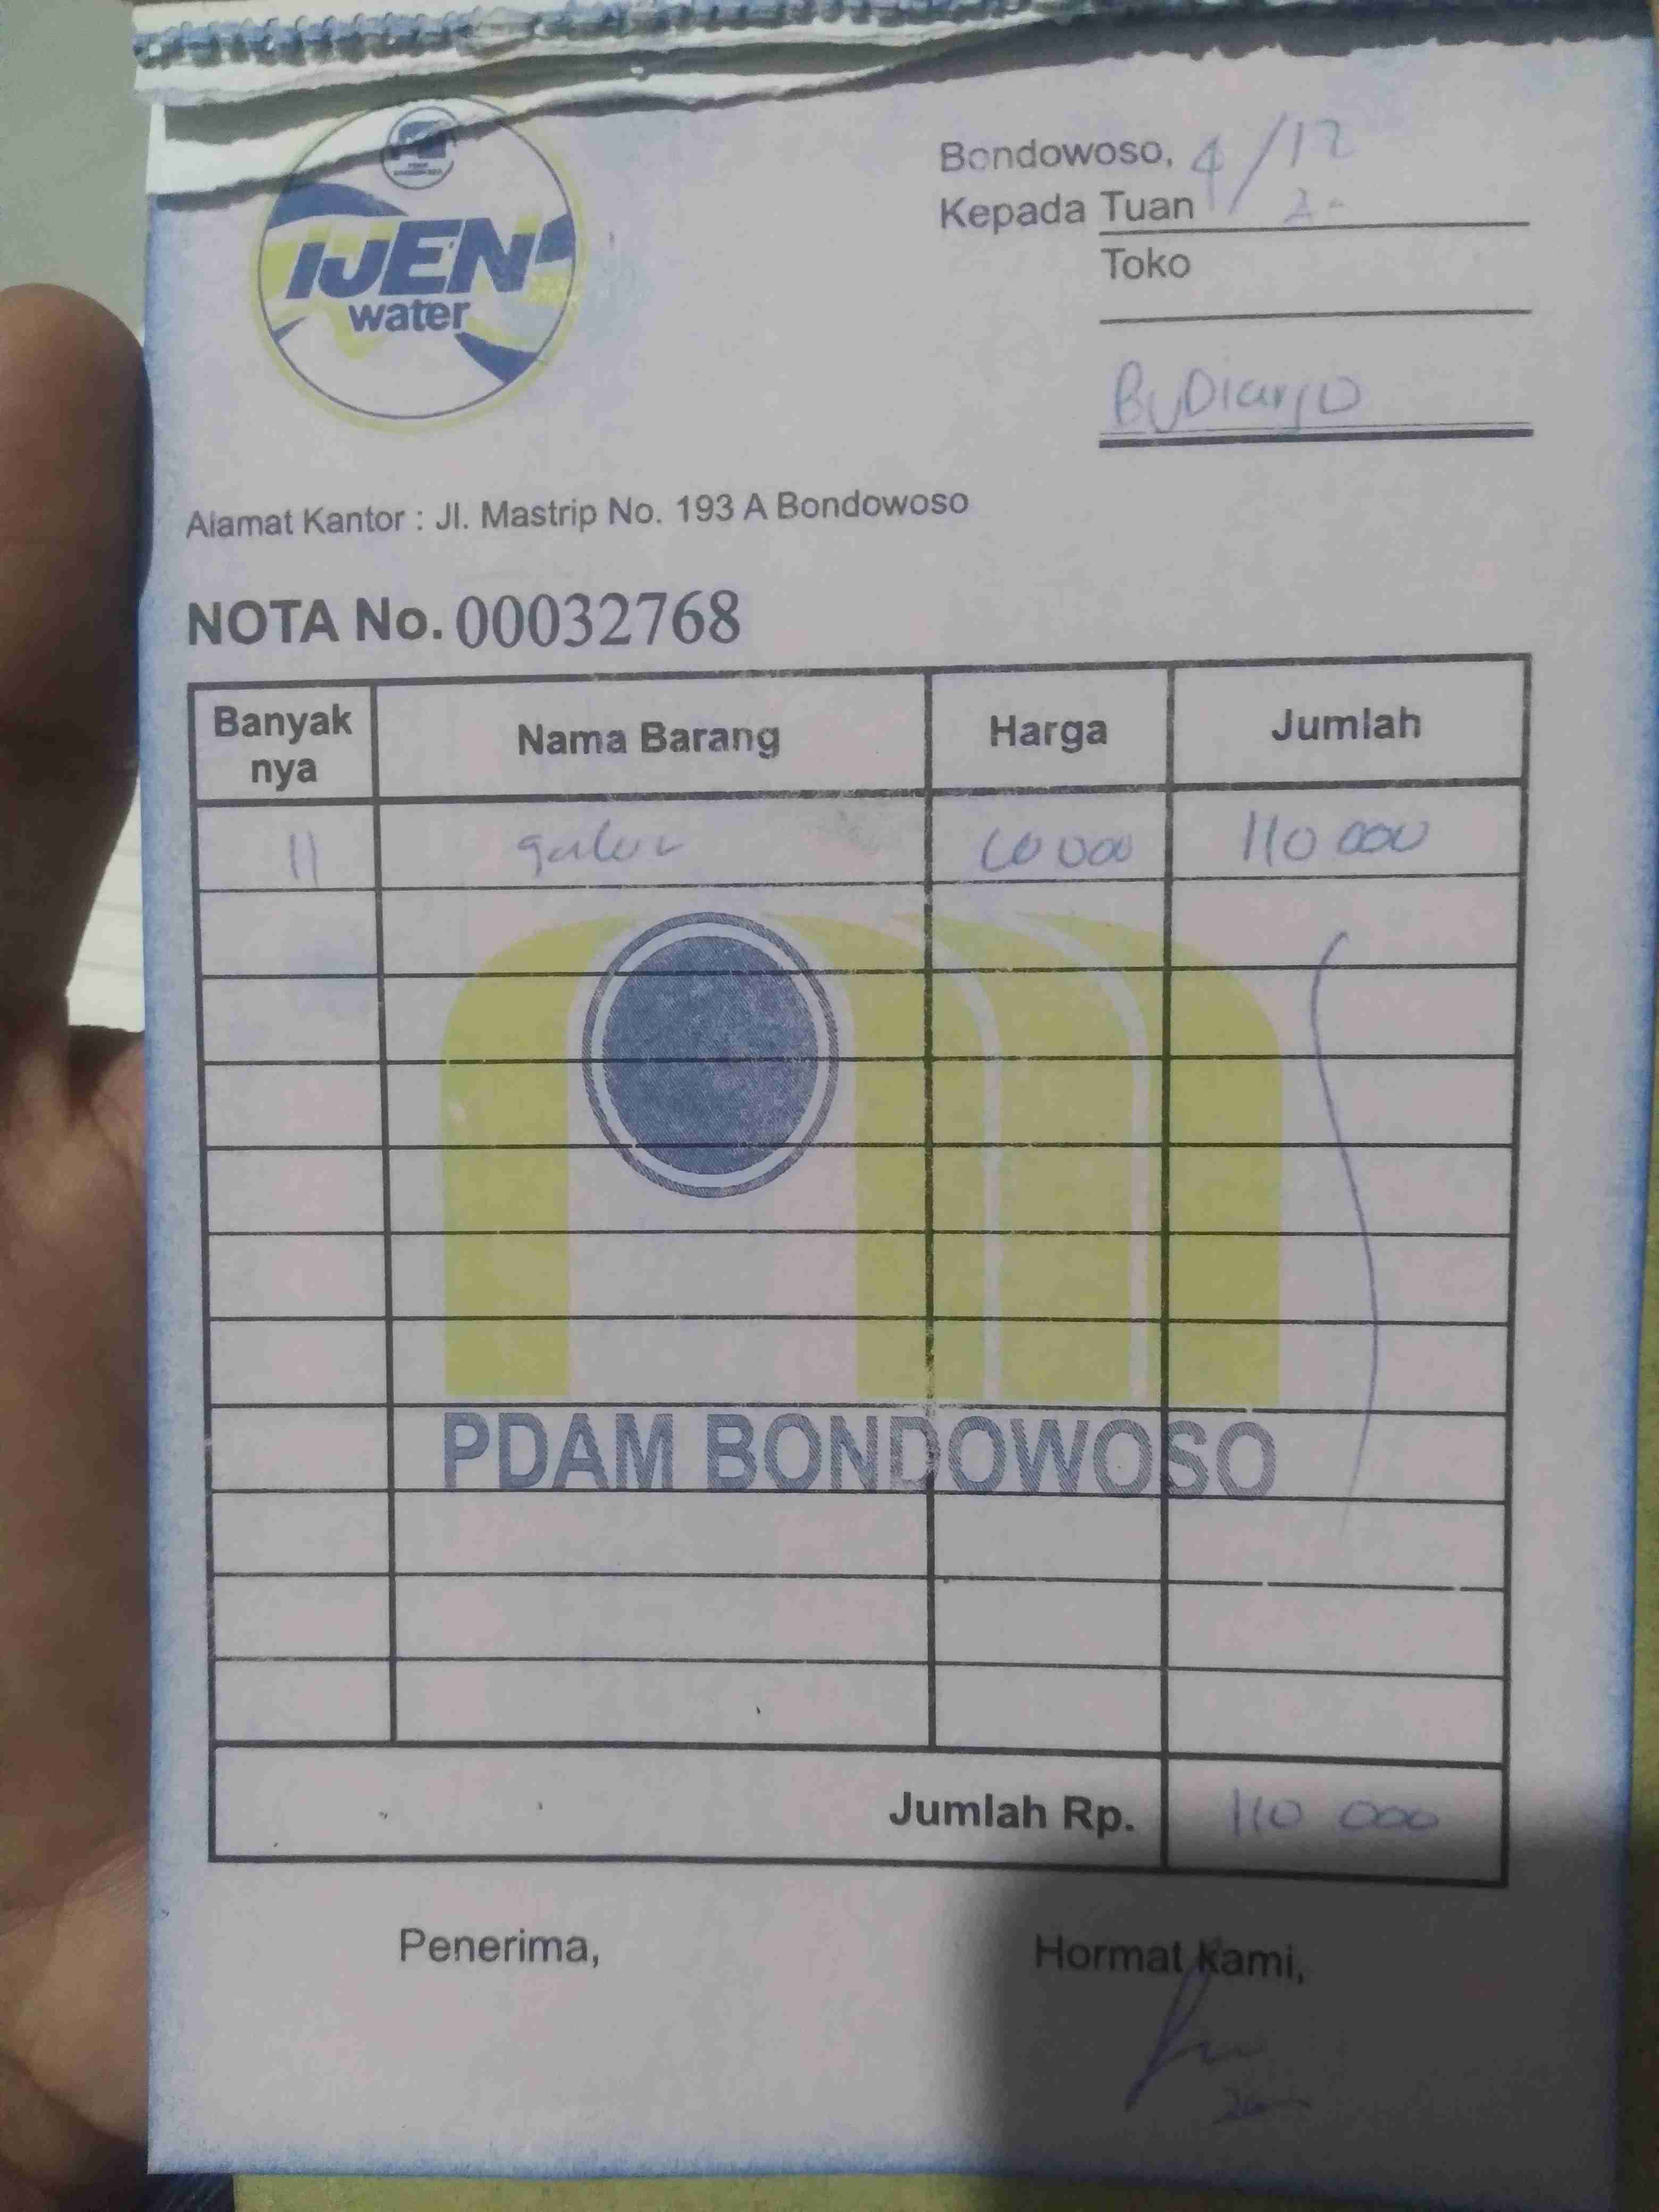 IJEN
water
Bondowoso, 4/12
Kepada Tuan
Toko
Bu Diarjo
Alamat Kantor : Jl. Mastrip No. 193 A Bondowoso
NOTA No. 00032768
Banyak nya Nama Barang Harga Jumlah
11 galon 10 000 110 000
PDAM BONDOWOSO
Jumlah Rp. 110 000
Penerima, Hormat Kami,